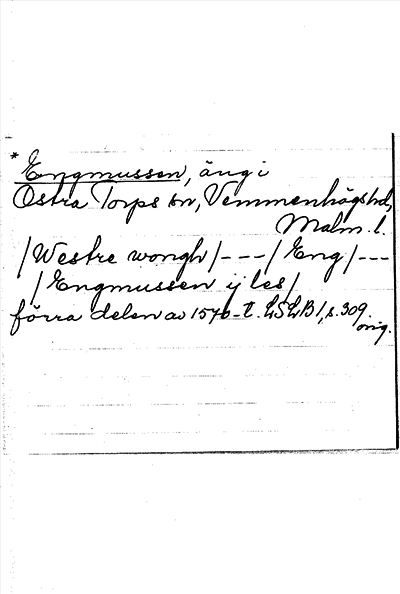 * Engmussen, äng i
Östra Torps sn, Vemmenhögs hd,
Malm. l.
/Westre wongh/ --- / Eng / ---
/ Engmussen ij les /
förra delen av 1570-t. LSLB 1, s. 309.
orig.